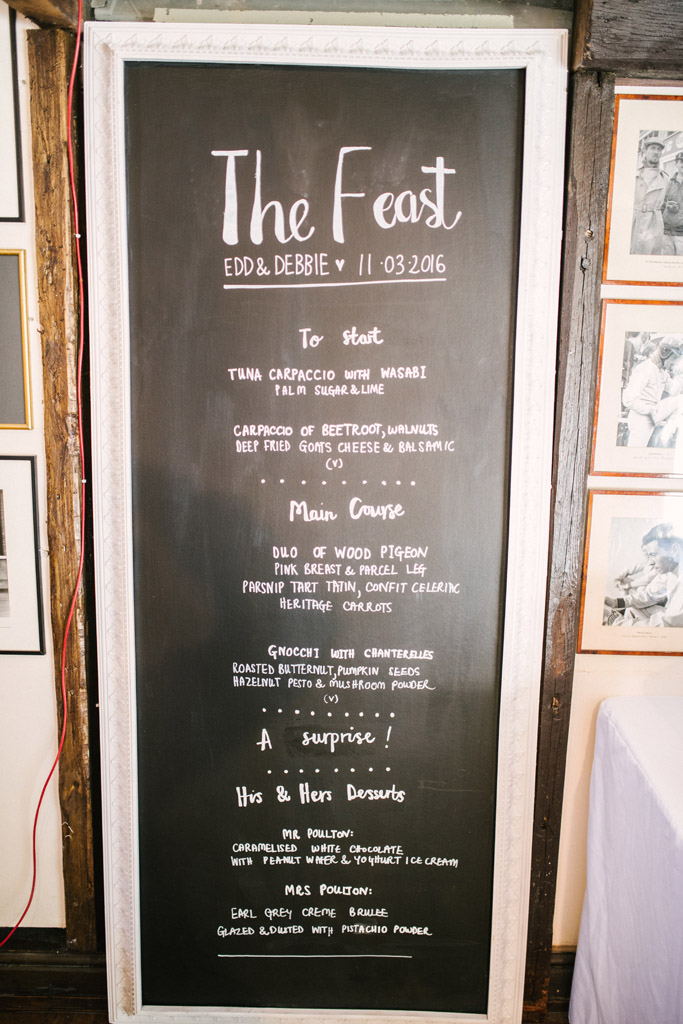 The Feast
EDD & DEBBIE ♥ 11.03.2016
To start
TUNA CARPACCIO WITH WASABI
PALM SUGAR & LIME
CARPACCIO OF BEETROOT, WALNUTS
DEEP FRIED GOATS CHEESE & BALSAMIC
(V)
Main Course
DUO OF WOOD PIGEON
PINK BREAST & PARCEL LEG
PARSNIP TART TATIN, CONFIT CELERIAC
HERITAGE CARROTS
GNOCCHI WITH CHANTERELLES
ROASTED BUTTERNUT, PUMPKIN SEEDS
HAZELNUT PESTO & MUSHROOM POWDER
(V)
A surprise!
His & Hers Desserts
MR POULTON:
CARAMELISED WHITE CHOCOLATE
WITH PEANUT WAFER & YOGHURT ICE CREAM
MRS POULTON:
EARL GREY CREME BRULEE
GLAZED & DUSTED WITH PISTACHIO POWDER